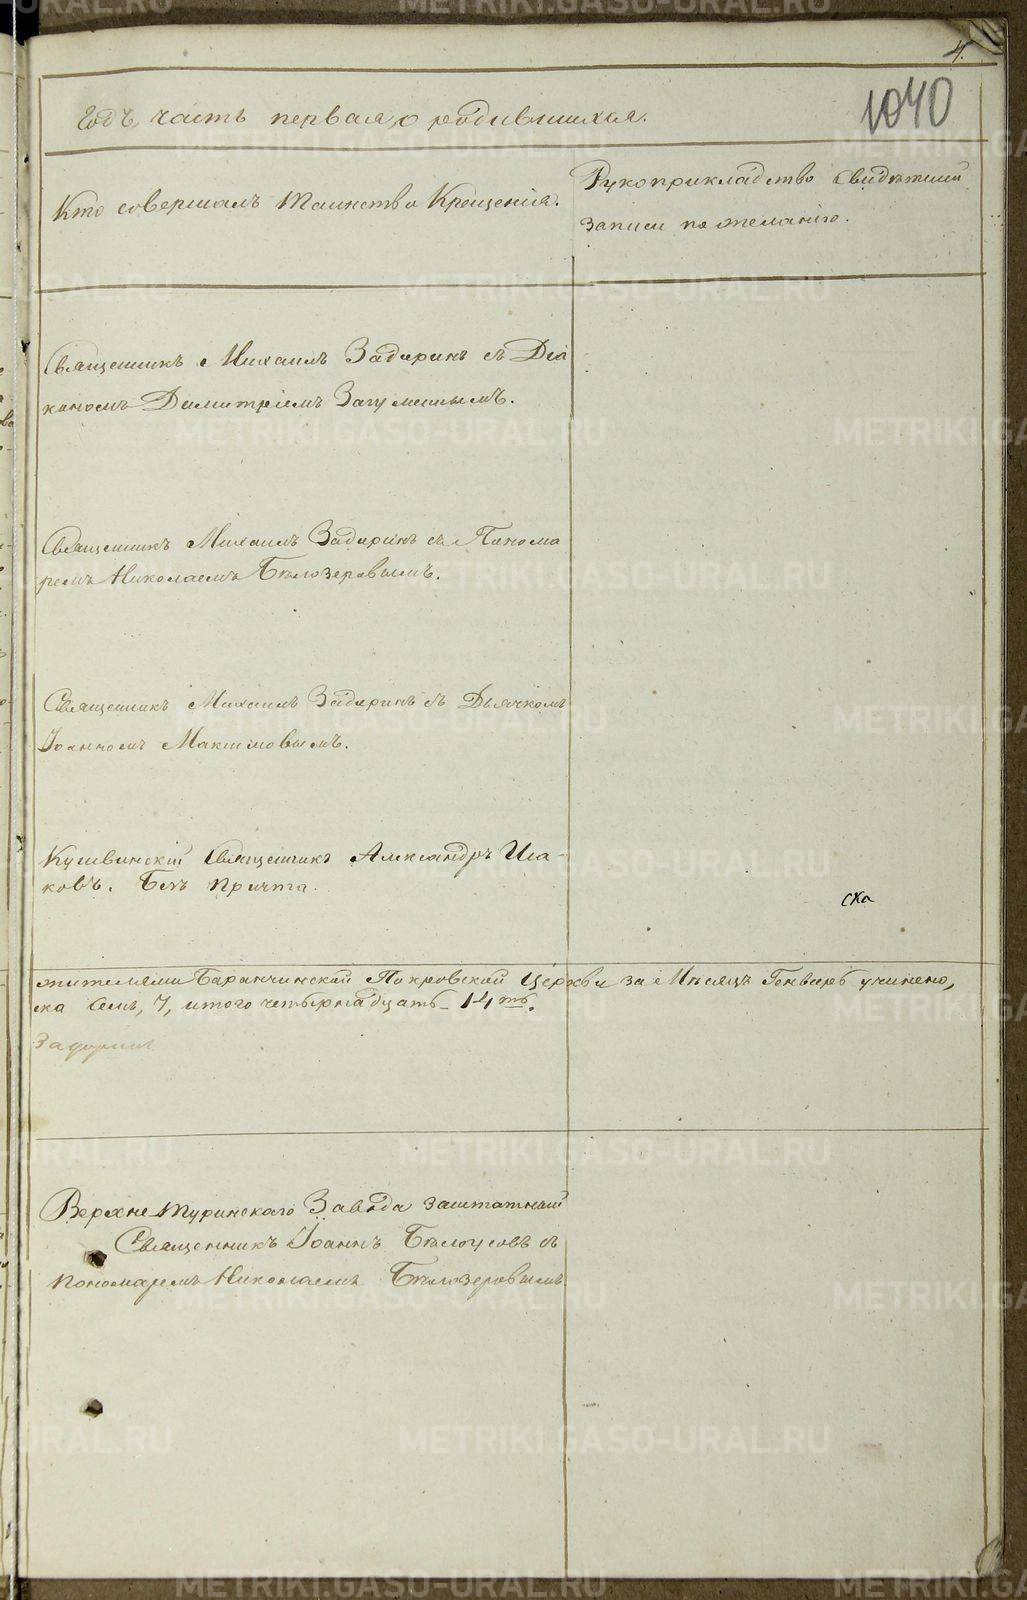 4.
1040
Годъ, часть первая, о родившихся.
Кто совершалъ Таинство Крещенія.
Рукоприкладство свидѣтелей
записи по желанію.
Священникъ Михаилъ Задоринъ съ Діа
кономъ Димитріемъ Загуменнымъ.
Священникъ Михаилъ Задоринъ съ Понома
ремъ Николаемъ Бѣлозеровымъ.
Священникъ Михаилъ Задоринъ съ Дьячкомъ
Іоанномъ Максимовымъ.
Кушвинскій Священникъ Александръ Иса-
ковъ. Безъ причта.
ска
жителями Баранчинской Покровской Церкви за Мѣсяцъ Генварь учинено,
ска семь, 7, итого четырнадцать - 14ть.
Задорин
Верхнетуринскаго Завода заштатный
Священникъ Іоаннъ Бѣлоусовъ съ
пономаремъ Николаемъ Бѣлозеровымъ.
METRIKI.GASO-URAL.RU